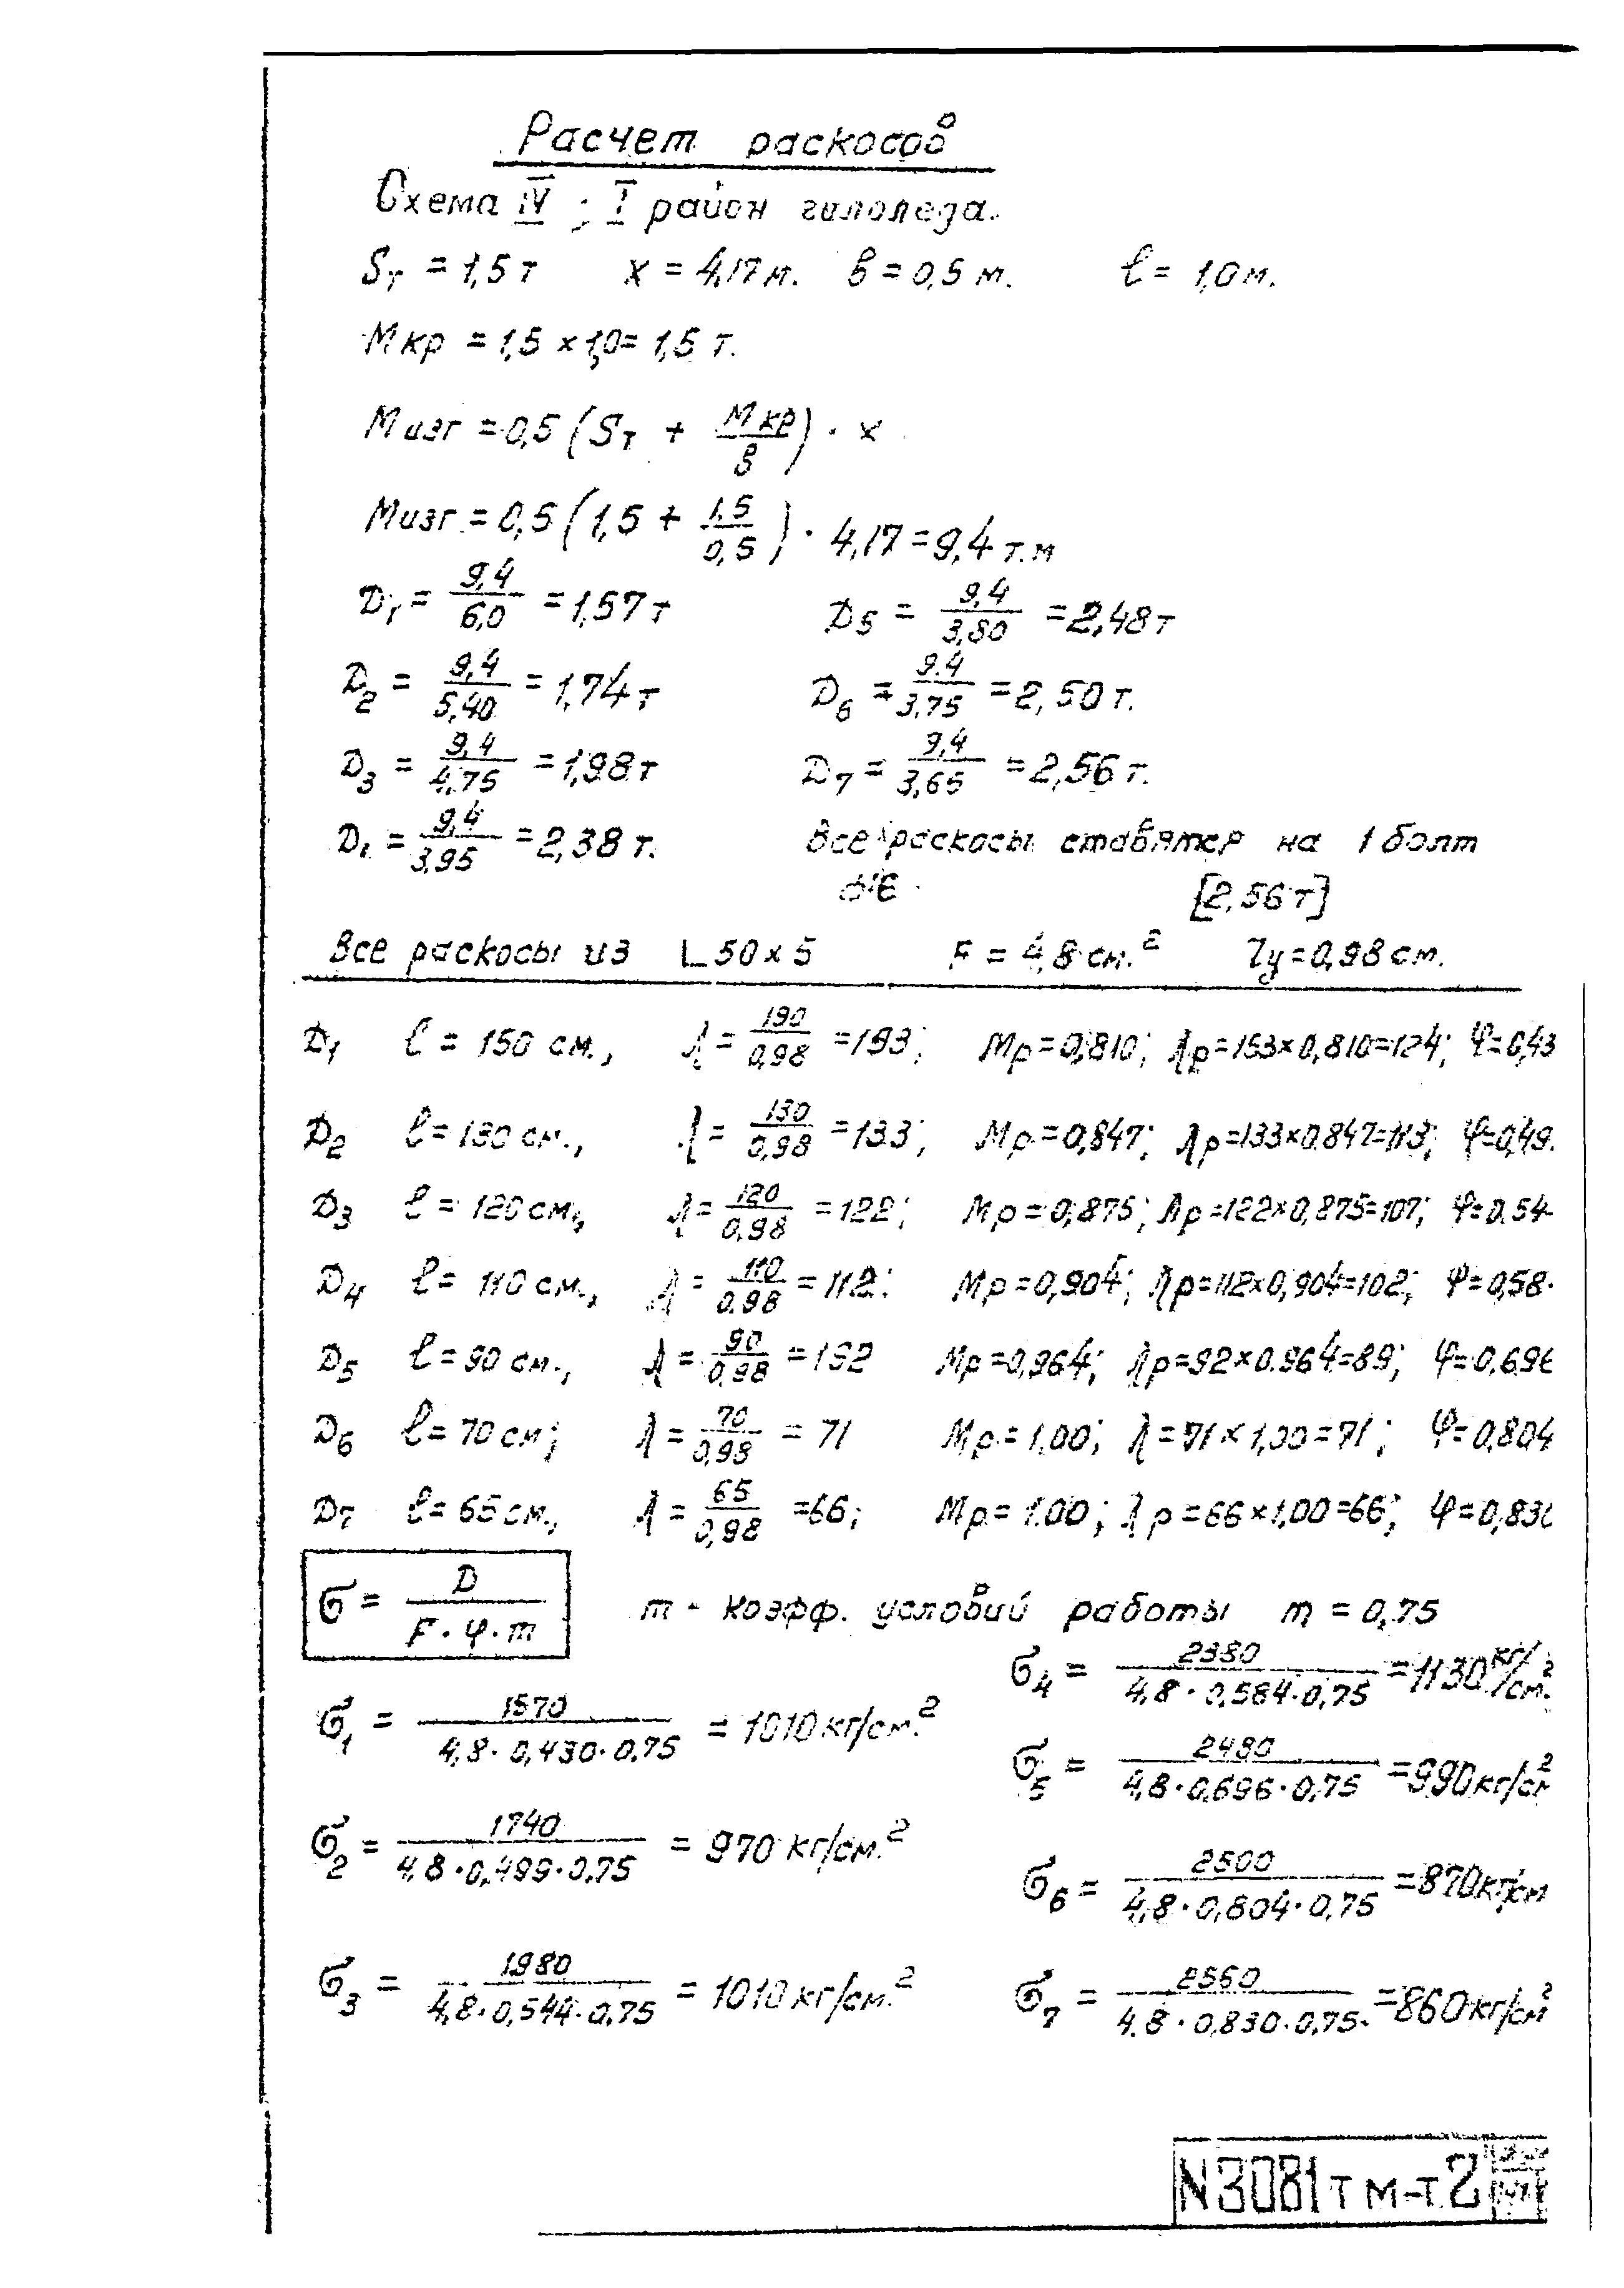 Расчет раскосов
Схема IV ; I район гололеда.
Sт = 1,5 т x = 4,17 м. в = 0,5 м. ℓ = 1,0 м.
Мкр = 1,5 × 1,0 = 1,5 т.
Мизг = 0,5 (Sт + Мкр/в) · x
Мизг = 0,5 (1,5 + 1,5/0,5) · 4,17 = 9,4 т.м
D1 = 9,4/6,0 = 1,57 т D5 = 9,4/3,80 = 2,48 т
D2 = 9,4/5,40 = 1,74 т D6 = 9.4/3,75 = 2,50 т.
D3 = 9,4/4,75 = 1,98 т D7 = 9,4/3,65 = 2,56 т.
D = 9,4/3,95 = 2,38 т. Все раскосы ставятся на 1 болт
ф16 [2,56 т]
Все раскосы из L 50×5 F = 4,8 см.² ry = 0,98 см.
D1 ℓ = 150 см., λ = 190/0,98 = 193; Мр = 0,810; λр = 153×0,810 = 124; φ = 0,43
D2 ℓ = 130 см., λ = 130/0,98 = 133; Мр = 0,847; λр = 133×0.847 = 113; φ = 0,49.
D3 ℓ = 120 см., λ = 120/0,98 = 122; Мр = 0,875; λр = 122×0,875 = 107; φ = 0.54
D4 ℓ = 110 см., λ = 110/0.98 = 112; Мр = 0,904; λр = 112×0,904 = 102; φ = 0,58
D5 ℓ = 90 см., λ = 90/0,98 = 192 Мр = 0,964; λр = 92×0.964 = 89; φ = 0,696
D6 ℓ = 70 см; λ = 70/0,98 = 71 Мр = 1.00; λ = 71×1,00 = 71; φ = 0,804
D7 ℓ = 65 см., λ = 65/0,98 = 66; Мр = 1.00; λр = 66×1,00 = 66; φ = 0,830
σ = D/F·φ·m m - коэфф. условий работы m = 0,75
σ4 = 2380/4,8·0,584·0,75 = 1130 кг/см.²
σ1 = 1570/4,8·0,430·0,75 = 1010 кг/см.²
σ5 = 2480/4,8·0,696·0,75 = 990 кг/см²
σ2 = 1740/4,8·0,499·0,75 = 970 кг/см.²
σ6 = 2500/4,8·0,804·0,75 = 870 кг/см
σ3 = 1980/4,8·0,544·0,75 = 1010 кг/см.²
σ7 = 2560/4.8·0,830·0,75 = 860 кг/см²
N3081тм-т2